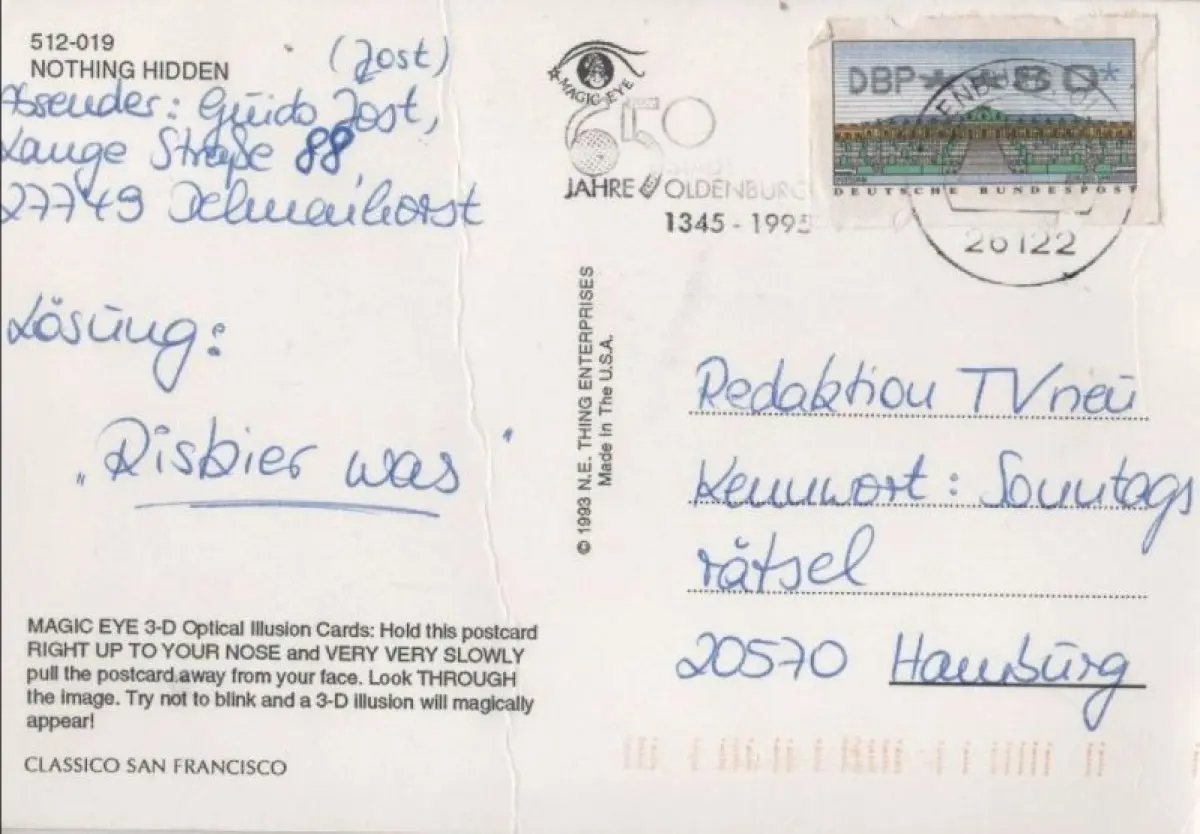 512-019
NOTHING HIDDEN
(Jost)
Absender: Guido Jost,
Lange Straße 88,
27749 Delmenhorst
Lösung:
„Risbier was"
MAGIC EYE 3-D Optical Illusion Cards: Hold this postcard
RIGHT UP TO YOUR NOSE and VERY VERY SLOWLY
pull the postcard away from your face. Look THROUGH
the image. Try not to blink and a 3-D illusion will magically
appear!
CLASSICO SAN FRANCISCO
MAGIC EYE
650
JAHRE OLDENBURG
1345 - 1995
© 1993 N.E. THING ENTERPRISES
Made In The U.S.A.
DBP * * 80 *
DEUTSCHE BUNDESPOST
26122
Redaktion TVneu
Kennwort: Sonntags
rätsel
20570 Hamburg